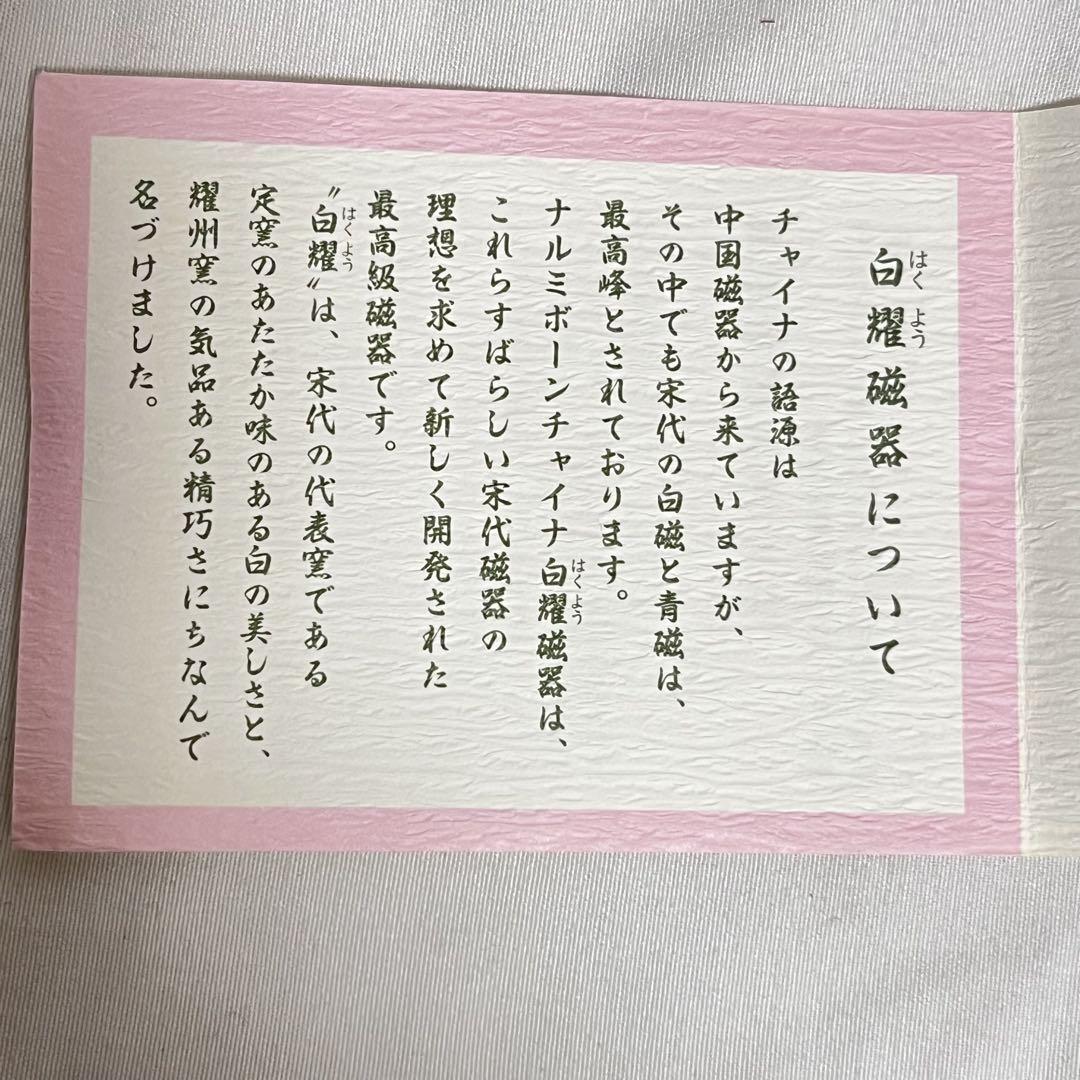 白耀磁器について
はくよう
チャイナの語源は
中国磁器から来ていますが、
その中でも宋代の白磁と青磁は、
最高峰とされております。
ナルミボーンチャイナ白耀磁器は、
はくよう
これらすばらしい宋代磁器の
理想を求めて新しく開発された
最高級磁器です。
〝白耀〟は、宋代の代表窯である
はくよう
定窯のあたたか味のある白の美しさと、
耀州窯の気品ある精巧さにちなんで
名づけました。